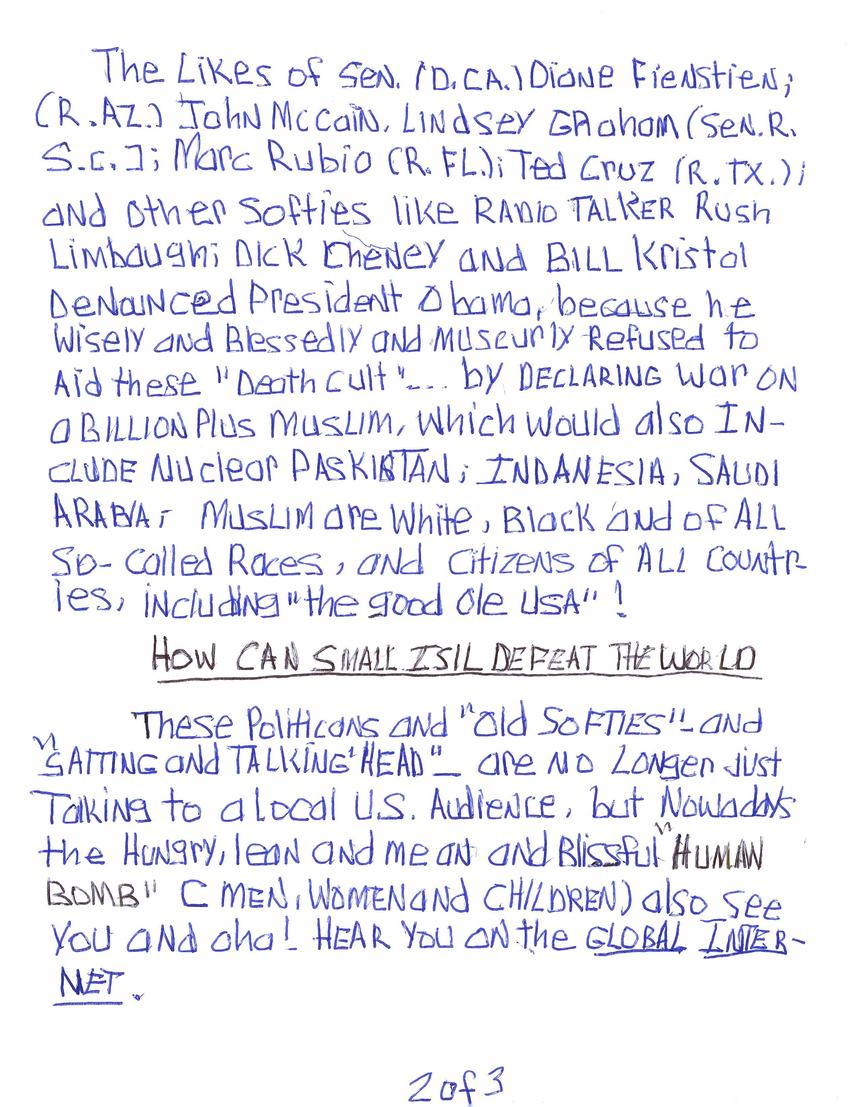 The Likes of SEN. (D.CA.) Diane Fienstien;
(R.AZ.) John McCain, Lindsey GRaham (SeN.R.
S.C.); Marc Rubio (R. FL.); Ted Cruz (R.TX.);
and other Softies like RADIO TALKER Rush
Limbaugh; DICK Cheney and BILL Kristol
Denounced President Obama, because he
Wisely and Blessedly and Museurly Refused to
Aid these "Death Cult"... by DECLARING War ON
a BILLION Plus MUSLIM, which would also IN-
CLUDE Nuclear PASKISTAN; INDANESIA, SAUDI
ARABIA; MUSLIM are White, Black and of ALL
So-called Races, and Citizens of ALL Countr-
ies, including "the good ole USA"!
HOW CAN SMALL ISIL DEFEAT THE WORLD
These Politicans and "Old SOFTIES"- and
"SAITING and TALKING' HEAD"- are NO Longer just
Talking to a local U.S. Audience, but Nowadays
the Hungry, lean and mean and Blissful "HUMAN
BOMB" (MEN, WOMEN and CHILDREN) also see
You and aha! HEAR YOU ON the GLOBAL INTER-
NET.
2 of 3